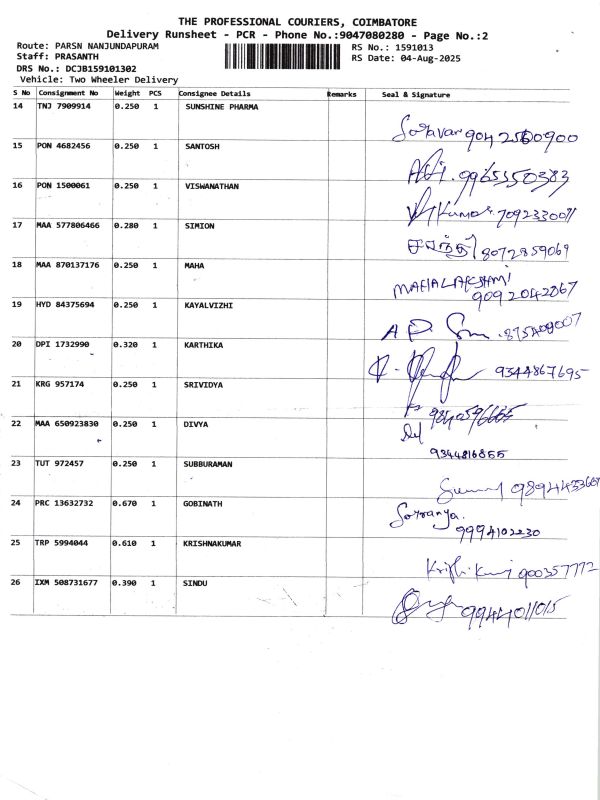 THE PROFESSIONAL COURIERS, COIMBATORE
Delivery Runsheet - PCR - Phone No.:9047080280 - Page No.:2
Route: PARSN NANJUNDAPURAM RS No.: 1591013
Staff: PRASANTH RS Date: 04-Aug-2025
DRS No.: DCJB159101302
Vehicle: Two Wheeler Delivery
S No Consignment No Weight PCS Consignee Details Remarks Seal & Signature
14 TNJ 7909914 0.250 1 SUNSHINE PHARMA
15 PON 4682456 0.250 1 SANTOSH
9965350383
16 PON 1500061 0.250 1 VISWANATHAN
Kumar
17 MAA 577806466 0.280 1 SIMION
8072859069
18 MAA 870137176 0.250 1 MAHA
MAHALAKSHMI
9092042867
19 HYD 84375694 0.250 1 KAYALVIZHI
20 DPI 1732990 0.320 1 KARTHIKA
9344867695
21 KRG 957174 0.250 1 SRIVIDYA
22 MAA 650923830 0.250 1 DIVYA
9344816855
23 TUT 972457 0.250 1 SUBBURAMAN
24 PRC 13632732 0.670 1 GOBINATH
Sowranya.
9994102230
25 TRP 5994044 0.610 1 KRISHNAKUMAR
900357772
26 IXM 508731677 0.390 1 SINDU
9944011015